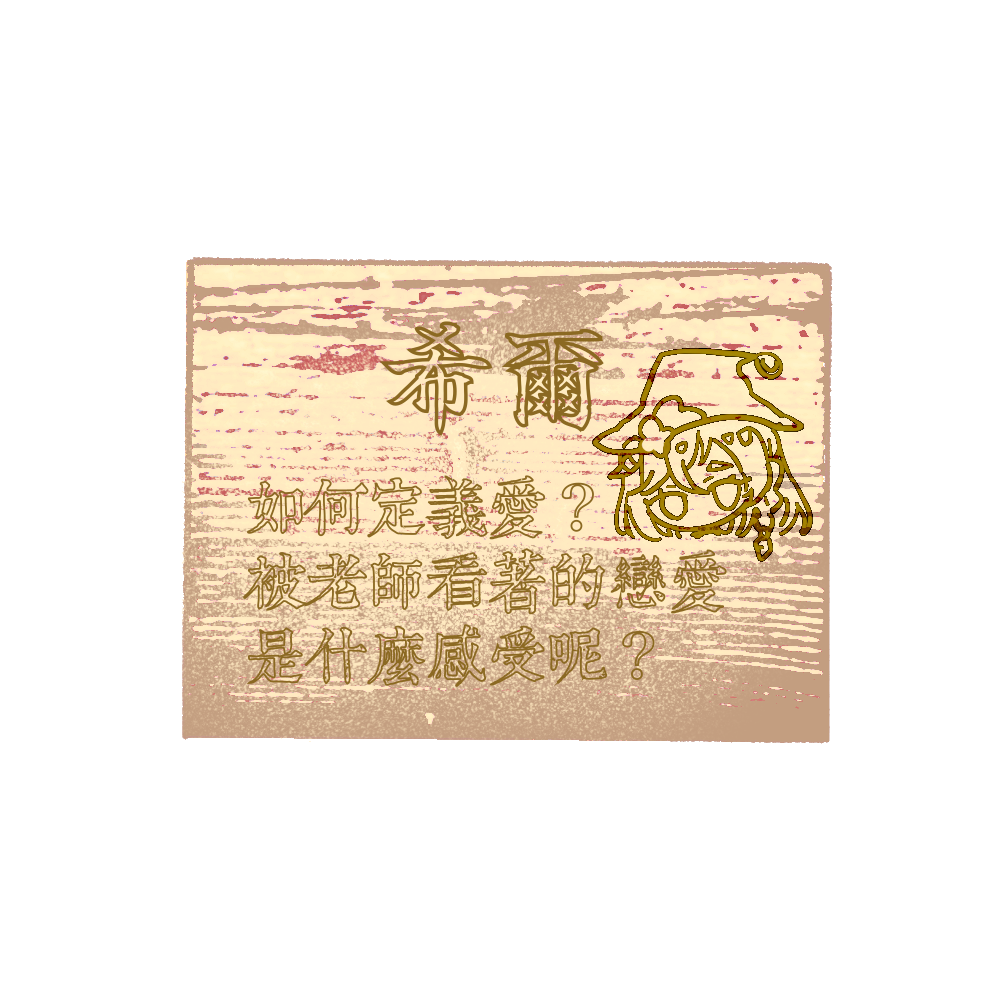 希爾
如何定義愛？
被老師看著的戀愛
是什麼感受呢？